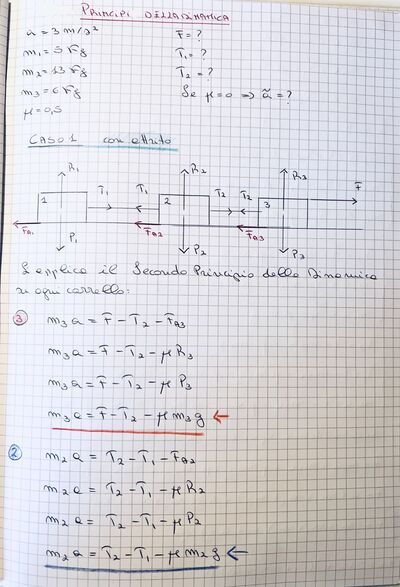 PRINCIPI DELLA DINAMICA
a = 3 m/s² F = ?
m₁ = 5 Kg T₁ = ?
m₂ = 13 Kg T₂ = ?
m₃ = 6 Kg Se μ=0 => ã = ?
μ = 0,5
CASO 1 con attrito
R₁ R₂ R₃
T₁ T₁ T₂ T₂ F
1 2 3
FA1 FA2 FA3
P₁ P₂ P₃
S'applica il Secondo Principio della Dinamica
su ogni carrello:
③ m₃ a = F - T₂ - FA3
m₃ a = F - T₂ - μ R₃
m₃ a = F - T₂ - μ P₃
m₃ a = F - T₂ - μ m₃ g ←
② m₂ a = T₂ - T₁ - FA2
m₂ a = T₂ - T₁ - μ R₂
m₂ a = T₂ - T₁ - μ P₂
m₂ a = T₂ - T₁ - μ m₂ g ←